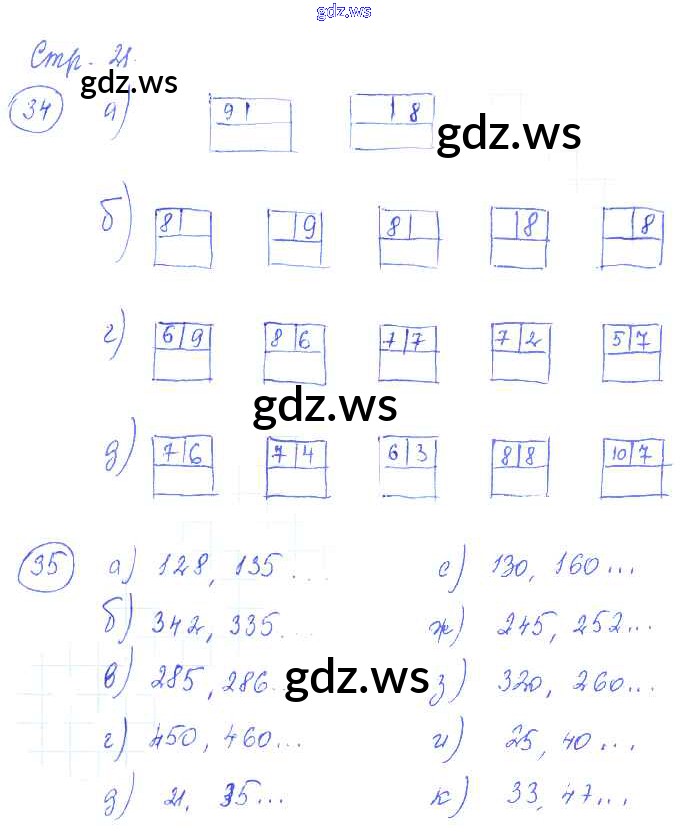 gdz.ws
Стр. 21.
gdz.ws
34 а) 9 | 8
gdz.ws
б) 8 | 9 8 | 8 8
г) 6 9 8 6 7 7 7 2 5 7
gdz.ws
д) 7 6 7 4 6 3 8 8 10 7
35 а) 128, 135... е) 130, 160...
б) 342, 335... ж) 245, 252...
в) 285, 286... з) 320, 260...
gdz.ws
г) 450, 460... и) 25, 40...
д) 21, 35... к) 33, 47...